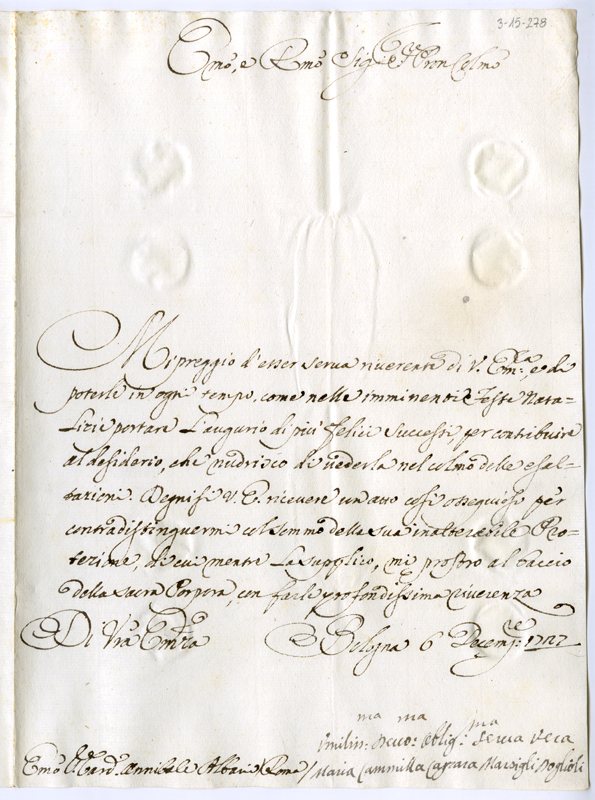 3-15-278
Emo, e Rmo Sigre Pron Colmo
Mi preggio d'esser serva riverente di V. Emza, e da
poterle in ogni tempo, come nelle imminenti Feste Nata=
lizie portare l'augurio di più felici successi, per contribuire
al desiderio, che nudrisco di vederla nel colmo delle esal=
tazioni. Degnisi V. E. ricevere un atto così ossequioso per
contradistinguermi col sommo della sua inalterabile Pro=
tezione, di cui mentre la supplico, mi prostro al baccio
della sacra Porpora, con farle profondissima riverenza
Di Vra Emza Bologna 6 Decembre 1727
Umilima Devoma Obligma Serva Vera
Emo Card. Annibale Albani (Roma) Maria Cammilla Caprara Marsigli Doglioli